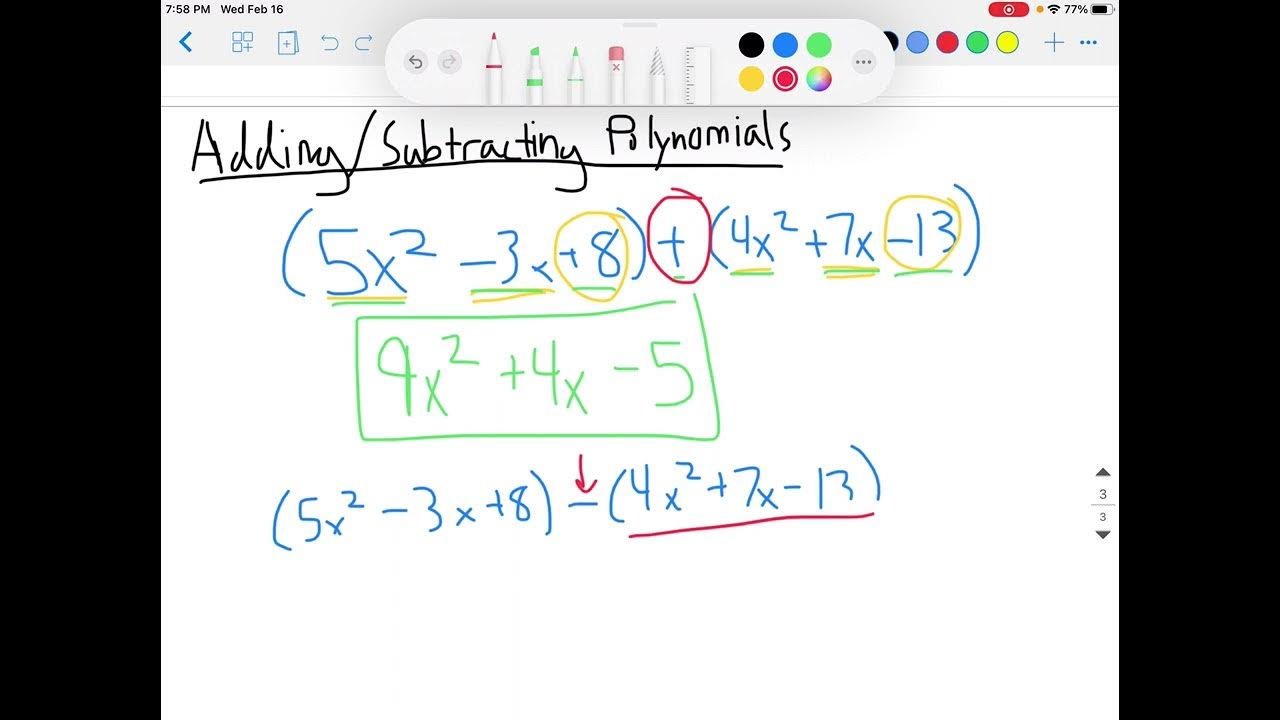 7:58 PM Wed Feb 16
77%
Adding/Subtracting Polynomials
(5x² -3x +8) + (4x² +7x -13)
9x² +4x -5
(5x² -3x +8) - (4x² +7x -13)
3
3